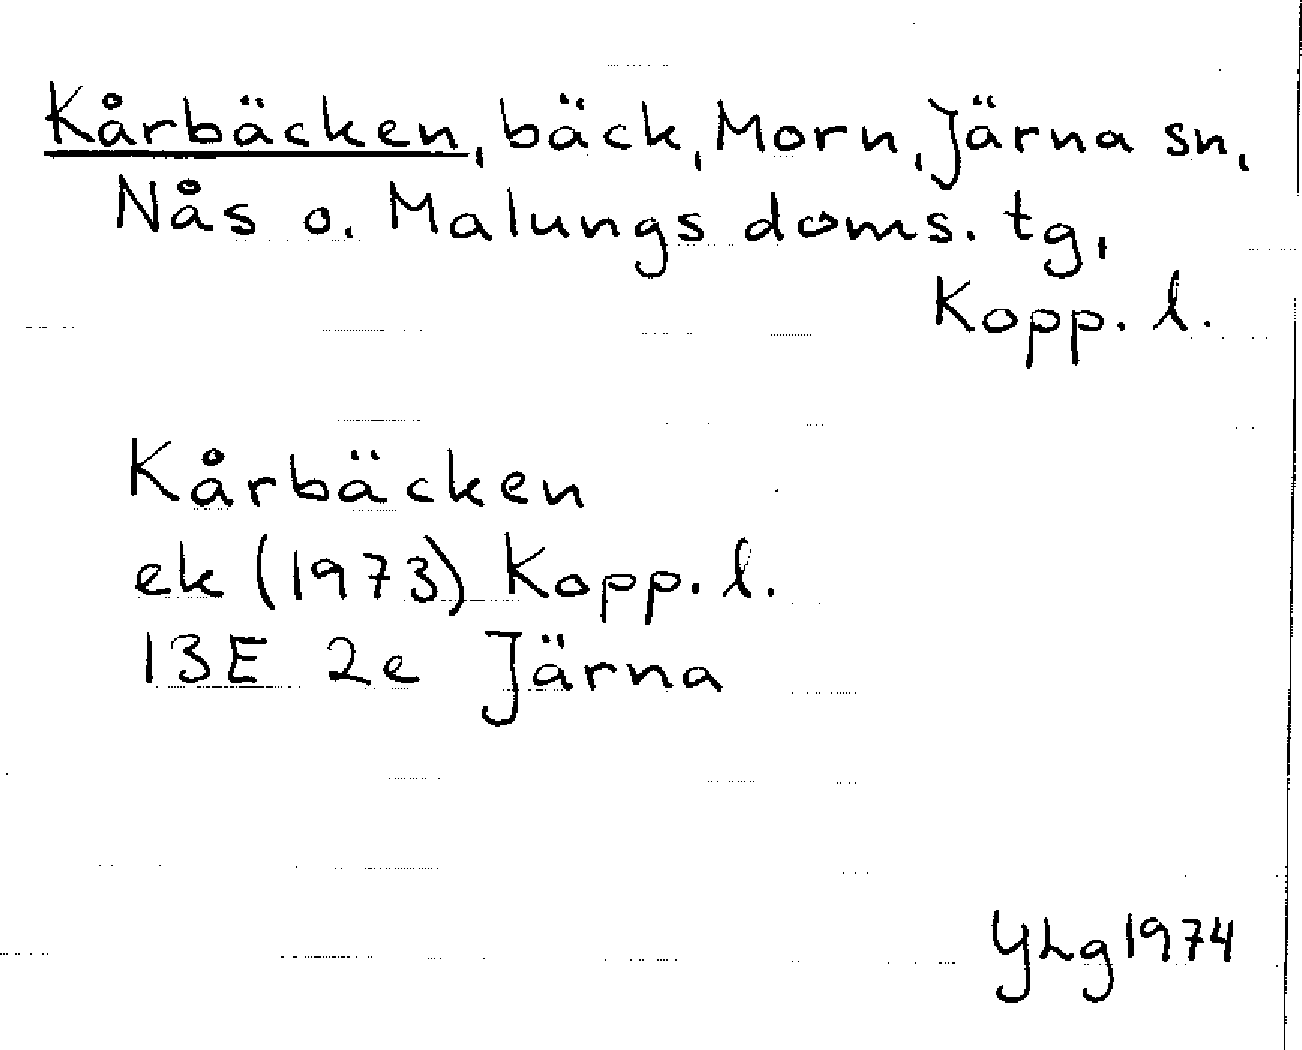 Kårbäcken, bäck, Morn, Järna sn,
Nås o. Malungs doms. tg,
Kopp. l.
Kårbäcken
ek (1973) Kopp. l.
13E 2e Järna
YLg 1974